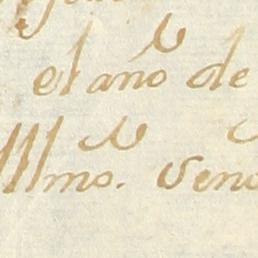 el año de
Illmo. Seno